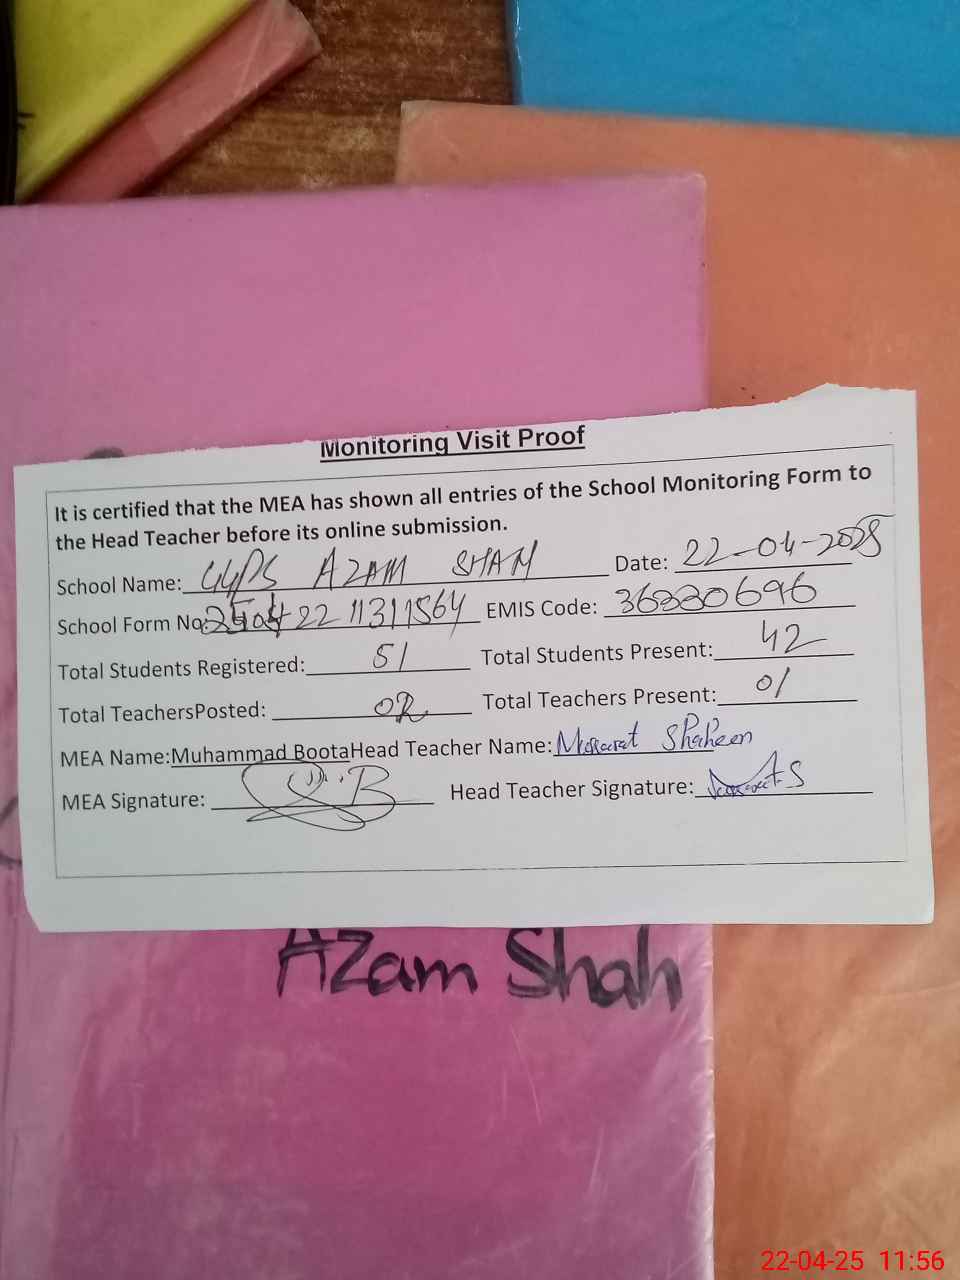 Monitoring Visit Proof
It is certified that the MEA has shown all entries of the School Monitoring Form to
the Head Teacher before its online submission.
School Name: GGPS AZAM SHAH Date: 22-04-2025
School Form No: 250422 11311564 EMIS Code: 36330696
Total Students Registered: 51 Total Students Present: 42
Total TeachersPosted: 02 Total Teachers Present: 01
MEA Name:Muhammad BootaHead Teacher Name: Musarat Shaheen
MEA Signature: Head Teacher Signature:
Azam Shah
22-04-25 11:56